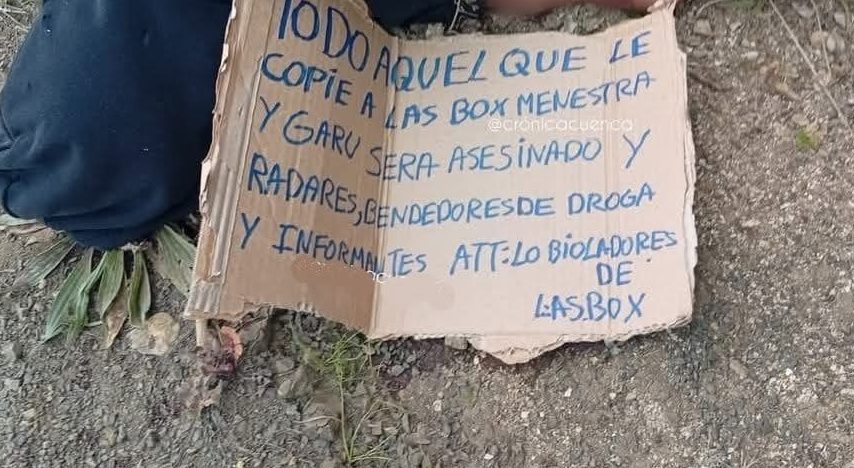 TODO AQUEL QUE LE
COPIE A LAS BOX MENESTRA
@crónicacuenca
Y GARU SERA ASESiNADO Y
RADARES, BENDEDORES DE DROGA
Y INFORMANTES ATT: LO BiOLADORES
DE
LAS BOX